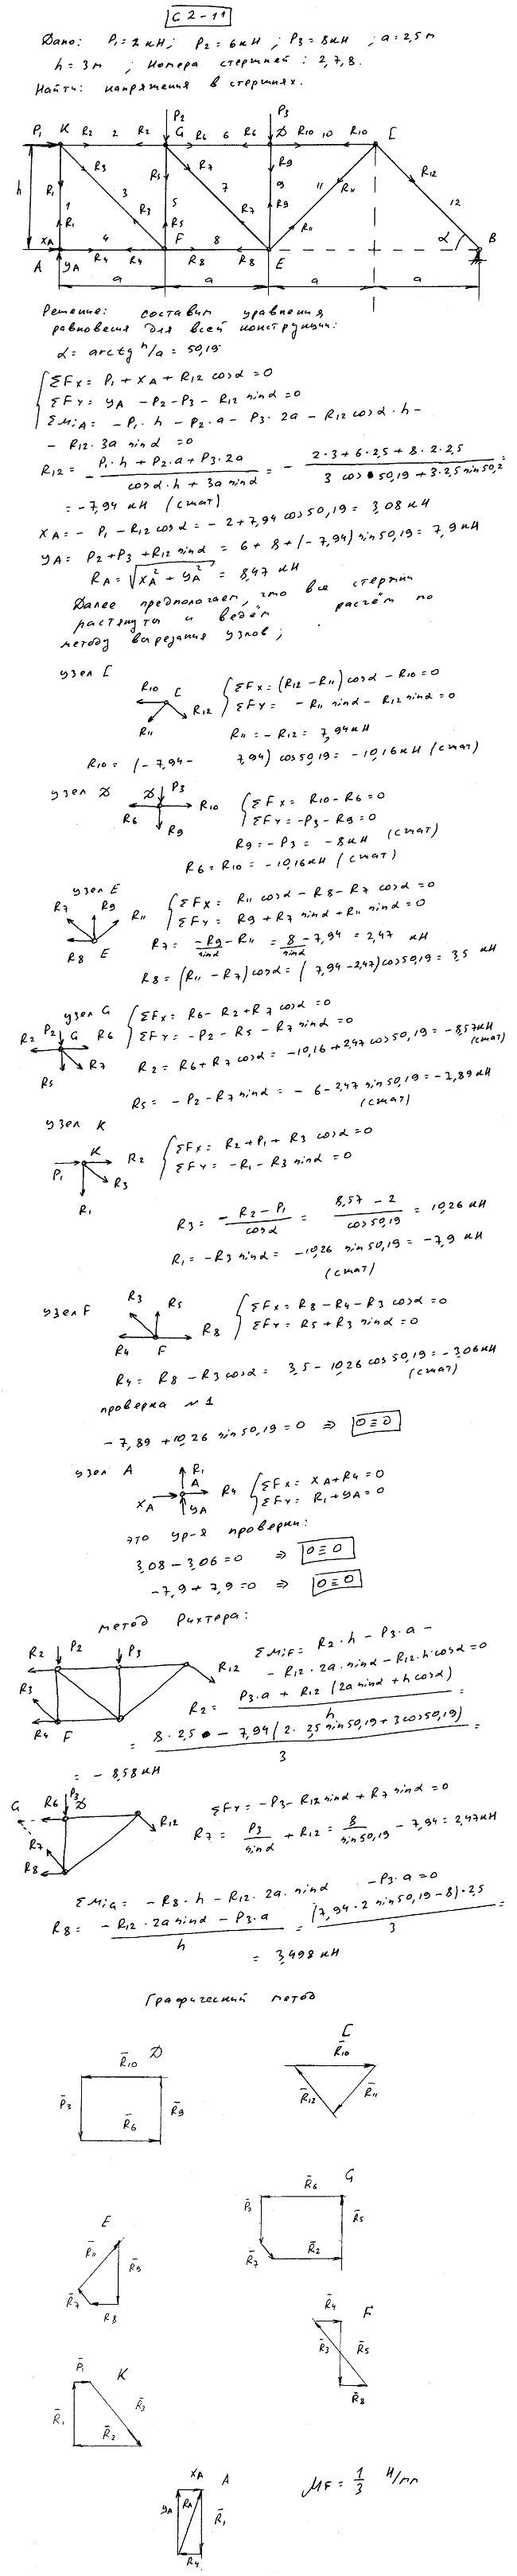 С 2-11
Дано: P₁=2кН; P₂=6кН; P₃=8кН; a=2,5м
h=3м; Номера стержней: 2,7,8.
Найти: напряжения в стержнях.
P₁ K R₂ 2 R₂ P₂ G R₆ 6 R₆ P₃ D R₁₀ 10 R₁₀ C
h R₁ 1 R₁ R₃ 3 R₃ R₅ 5 R₅ R₇ 7 R₇ R₉ 9 R₉ R₁₁ 11 R₁₁ R₁₂ 12
XA A YA R₄ 4 R₄ F R₈ 8 R₈ E α B
a a a a
Решение: составим уравнения
равновесия для всей конструкции:
α = arctg h/a = 50,19
ΣFx = P₁ + XA + R₁₂ cosα = 0
ΣFy = YA - P₂ - P₃ - R₁₂ sinα = 0
ΣMiA = - P₁·h - P₂·a - P₃·2a - R₁₂ cosα·h -
- R₁₂·3a sinα = 0
R₁₂ = - (P₁·h + P₂·a + P₃·2a)/(cosα·h + 3a sinα) = - (2·3+6·2,5+8·2·2,5)/(3 cos 50,19+3·2,5 sin50,2) =
= -7,94 кН (сжат)
XA = - P₁ - R₁₂ cosα = - 2+7,94 cos50,19 = 3,08 кН
YA = P₂+P₃+R₁₂ sinα = 6+8+(-7,94) sin50,19 = 7,9 кН
RA = √(XA² + YA²) = 8,47 кН
Далее предполагаем, что все стержни
растянуты и ведём расчёт по
методу вырезания узлов;
узел C
R₁₀ C R₁₁ R₁₂ ΣFx = (R₁₂ - R₁₁) cosα - R₁₀ = 0
ΣFy = - R₁₁ sinα - R₁₂ sinα = 0
R₁₁ = - R₁₂ = 7,94кН
R₁₀ = (-7,94 - 7,94) cos50,19 = -10,16кН (сжат)
узел D
D P₃ R₁₀ R₆ R₉ ΣFx = R₁₀ - R₆ = 0
ΣFy = -P₃ - R₉ = 0
R₉ = - P₃ = -8кН (сжат)
R₆ = R₁₀ = -10,16кН (сжат)
узел E
R₇ R₉ R₁₁ R₈ E ΣFx = R₁₁ cosα - R₈ - R₇ cosα = 0
ΣFy = R₉ + R₇ sinα + R₁₁ sinα = 0
R₇ = -R₉/sinα - R₁₁ = 8/sinα - 7,94 = 2,47 кН
R₈ = (R₁₁ - R₇) cosα = (7,94-2,47) cos50,19 = 3,5 кН
узел G
R₂ P₂ G R₆ R₅ R₇ ΣFx = R₆ - R₂ + R₇ cosα = 0
ΣFy = - P₂ - R₅ - R₇ sinα = 0
R₂ = R₆ + R₇ cosα = -10,16 + 2,47 cos50,19 = -8,57кН (сжат)
R₅ = - P₂ - R₇ sinα = - 6 - 2,47 sin50,19 = -7,89 кН (сжат)
узел K
P₁ K R₂ R₃ R₁ ΣFx = R₂ + P₁ + R₃ cosα = 0
ΣFy = -R₁ - R₃ sinα = 0
R₃ = (- R₂ - P₁)/cosα = (8,57 - 2)/cos50,19 = 10,26 кН
R₁ = -R₃ sinα = -10,26 sin50,19 = -7,9 кН
(сжат)
узел F
R₃ R₅ R₄ F R₈ ΣFx = R₈ - R₄ - R₃ cosα = 0
ΣFy = R₅ + R₃ sinα = 0
R₄ = R₈ - R₃ cosα = 3,5 - 10,26 cos50,19 = -3,06кН (сжат)
проверка н 1
-7,89 + 10,26 sin50,19 = 0 ⇒ 0≡0
узел A
R₁ A R₄ XA YA ΣFx = XA + R₄ = 0
ΣFy = R₁ + YA = 0
это ур-я проверки:
3,08 - 3,06 = 0 ⇒ 0≡0
-7,9 + 7,9 = 0 ⇒ 0≡0
метод Рихтера:
R₂ P₂ P₃ R₁₂ R₃ R₄ F
ΣMiF = R₂·h - P₃·a -
- R₁₂·2a·sinα - R₁₂·h·cosα = 0
R₂ = (P₃·a + R₁₂(2a sinα + h cosα))/h =
= (8·2,5 - 7,94(2·2,5 sin50,19 + 3cos50,19))/3 =
= -8,58кН
G R₆ P₃ D R₁₂ R₇ R₈
ΣFy = -P₃ - R₁₂ sinα + R₇ sinα = 0
R₇ = P₃/sinα + R₁₂ = 8/sin50,19 - 7,94 = 2,47кН
ΣMiG = -R₈·h - R₁₂·2a·sinα - P₃·a = 0
R₈ = (-R₁₂·2a sinα - P₃·a)/h = (7,94·2 sin50,19 - 8)·2,5/3 =
= 3,498 кН
Графический метод
D R̄₁₀ P̄₃ R̄₉ R̄₆
C R̄₁₀ R̄₁₂ R̄₁₁
G R̄₆ P̄₂ R̄₅ R̄₇ R̄₂
E R̄₁₁ R̄₉ R̄₇ R₈
F R̄₄ R̄₃ R̄₅ R̄₈
K P̄₁ R̄₁ R̄₃ R̄₂
A XA YA RA R̄₁ R₄
μF = 1/3 Н/мм